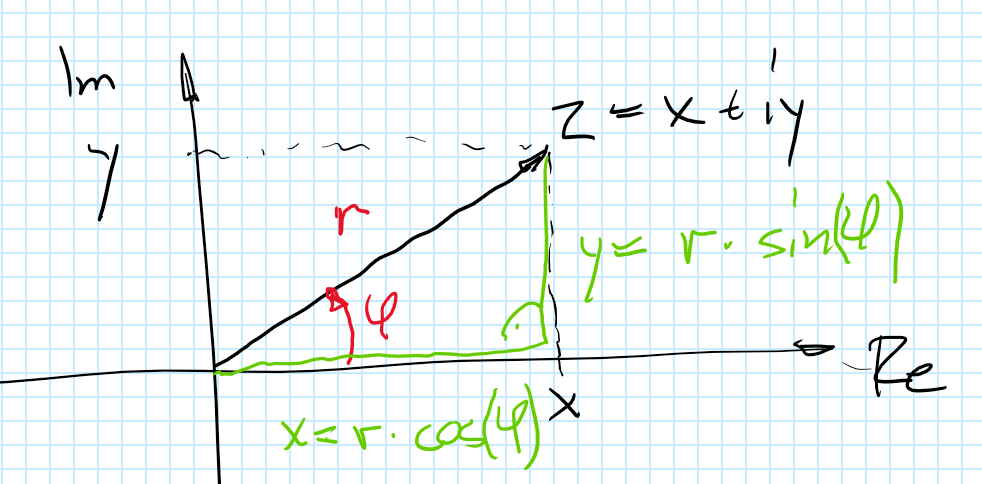 Im
z = x + iy
y
r
y = r · sin(φ)
φ
Re
x
x = r · cos(φ)